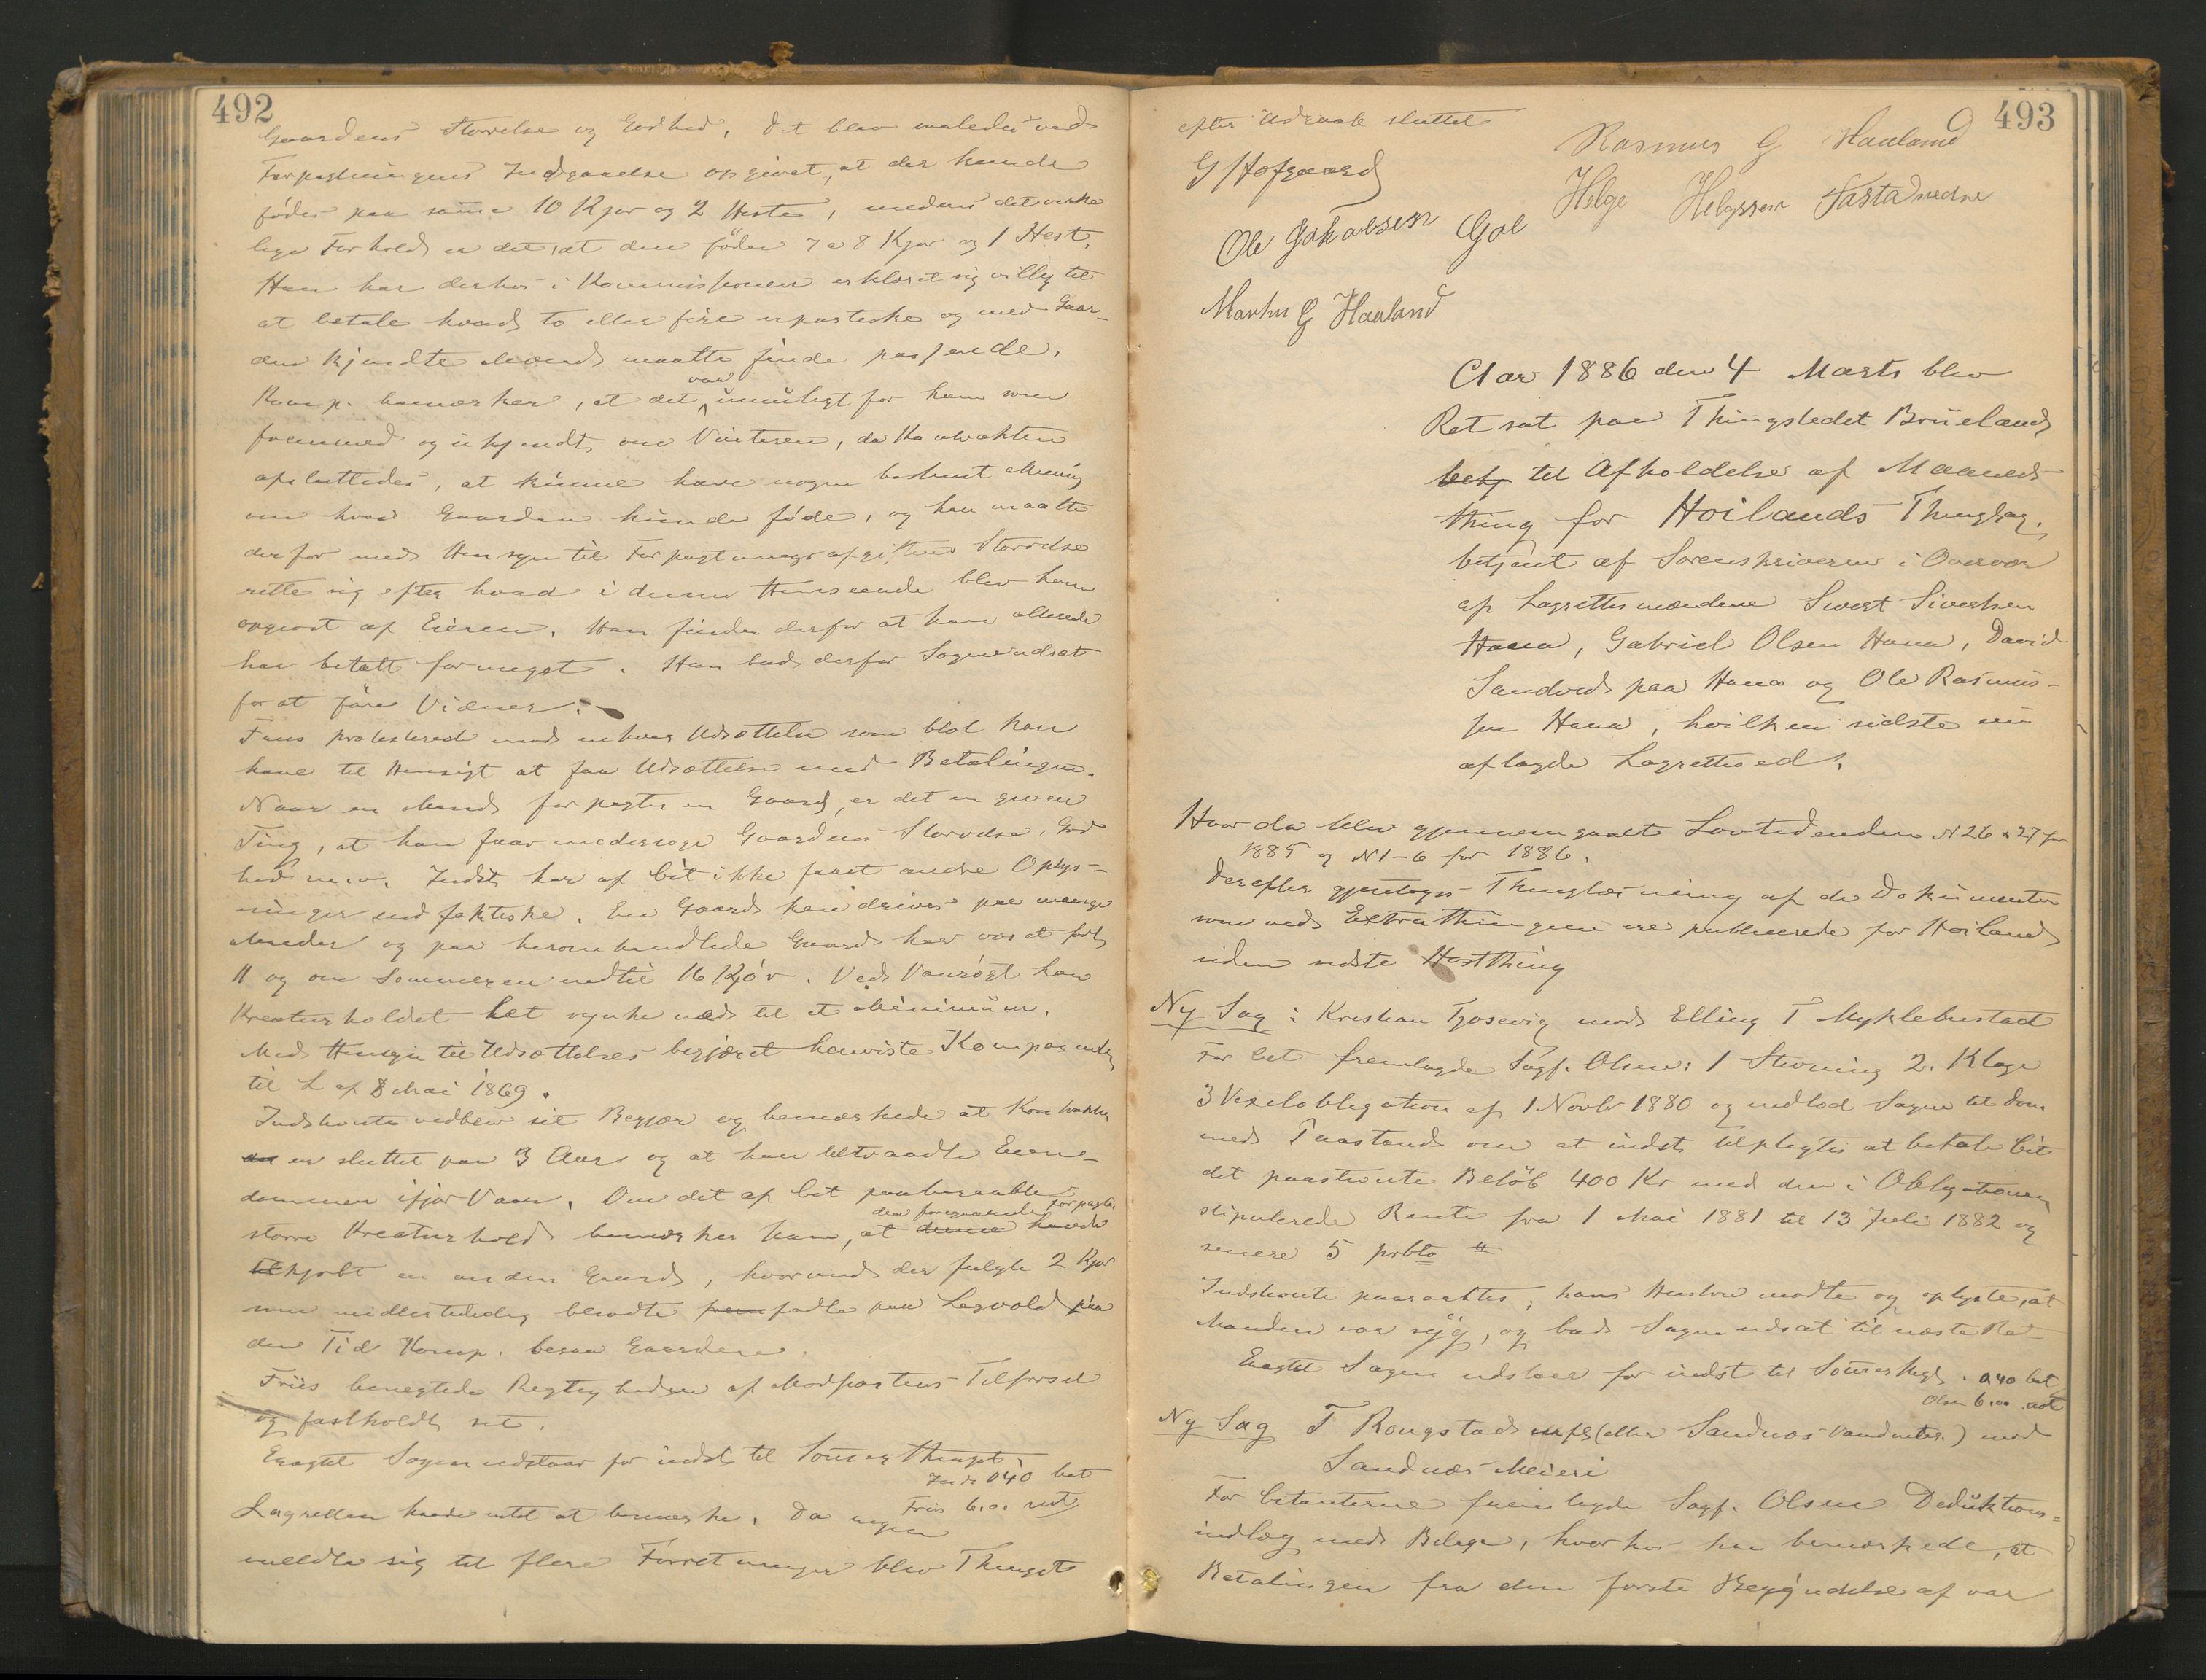 492
Gaardens Størrelse og Godhed. Det blev nemlig ved
Forpagtningens Indgaaelse opgivet, at der kunde
fødes paa samme 10 Kjør og 2 Heste, medens det virke
lige Forhold er det, at den føder 7 a 8 Kjør og 1 Hest.
Han har derhos i Kommissionen erklæret sig villig til
at betale hvad to eller fire upartiske og med Gaar-
den kjendte Mænd maatte finde passende.
Komp. bemærker, at det var umuligt for ham som
fremmed og ukjendt om Vinteren, da Kontrakten
afsluttedes, at kunne have nogen bestemt Mening
om hvad Gaarden kunde føde, og han maatte
derfor med Hensyn til Forpagtningsafgiftens Størrelse
rette sig efter hvad i denne Henseende blev ham
opgivet af Eieren. Han finder derfor at han allerede
har betalt formeget. Han bad derfor Sagen udsat
for at føre Vidner.
Friis protesterede mod enhver Udsættelse som blot kan
have til Hensigt at faa Udsættelse med Betalingen.
Naar en Mand forpagter en Gaard, er det en given
Ting, at han faar undersøge Gaardens Størrelse, God
hed m.v. Indst. har af Cit. ikke faaet andre Oplys-
ninger end faktiske. En Gaard kan drives paa mange
Maader og paa heromhandlede Gaard har været født
11 og om Sommeren indtil 16 Kjør. Ved Vanrøgt kan
Kreaturholdet let synke ned til et Minimum.
Med Hensyn til Udsættelsesbegjæret henviste Komparenten
til L af 8 Mai 1869.
Indstevnte vedblev sit Begjær og bemærkede at Kontrakten
er sluttet paa 3 Aar og at han tiltraadte Eien-
dommen ifjor Vaar. Om det af Cit. paaberaabte
den foregaaende Forpagter
større Kreaturhold bemærker han, at denne havde
tilkjøbt en anden Gaard, hvormed der fulgte 2 Kjør
som midlertidig blev fødte paa Lagvold paa
den Tid Komp. besaa Gaarden.
Friis benegtede Rigtigheden af Modpartens Tilførsel
og fastholdt sit.
Eragtet Sagen udstaar for indst. til Sommerthinget.
Inds 040 bet
Friis 6.00 rest
Lagretten havde intet at bemærke. Da ingen
meldte sig til flere Forretninger blev Thinget
493
efter Udraab sluttet
G Hofgaard
Rasmus G Haaland
Helge Helgesen Tastadnedre
Ole Jakobsen Gol
Marthn G Haaland
Aar 1886 den 4 Marts blev
Ret sat paa Thingstedet Brueland
betj til Afholdelse af Maaneds-
thing for Høilands Thinglag,
betjent af Sorenskriveren i Overvær
af Lagrettesmændene Sivert Sivertsen
Hana, Gabriel Olsen Hana, David
Sandved paa Hana og Ole Rasmus-
sen Hana, hvilken sidste nu
aflagde Lagrettesed.
Hvor da blev gjennemgaaet Lovtidenden N 26 a 27 for
1885 og N 1-6 for 1886.
Derefter gjentoges Thinglæsning af de Dokumenter
som ved Extrathingene ere publicerede for Høiland
siden sidste Høstthing
Ny Sag: Kristian Tjosevig mod Elling T Myklebustad
For Cit fremlagde Sagf. Olsen: 1 Stevning 2. Klage
3 Vexelobligation af 1 Novbr 1880 og indlod Sagen til Dom
med Paastand om at indst. tilpligtes at betale Cit
det paastevnte Beløb 400 Kr med den i Obligationen
stipulerede Rente fra 1 Mai 1881 til 13 Juli 1882 og
senere 5 prcto
Indstevnte paaraabtes, hans Hustru mødte og oplyste, at
Manden var syg, og bad Sagen udsat til næste Ret
Eragtet Sagen udstaar for indst. til Somerthgt. 0.40 bet
Olsen 6.00 rest
Ny Sag T Rongstad mfl (eller Sandnæs Vandverk) mod
Sandnæs Meieri
For Citanterne fremlagde Sagf. Olsen Deduktions-
indlæg med Bilage, hvorhos han bemærkede, at
Betalingen fra den første Begyndelse af var